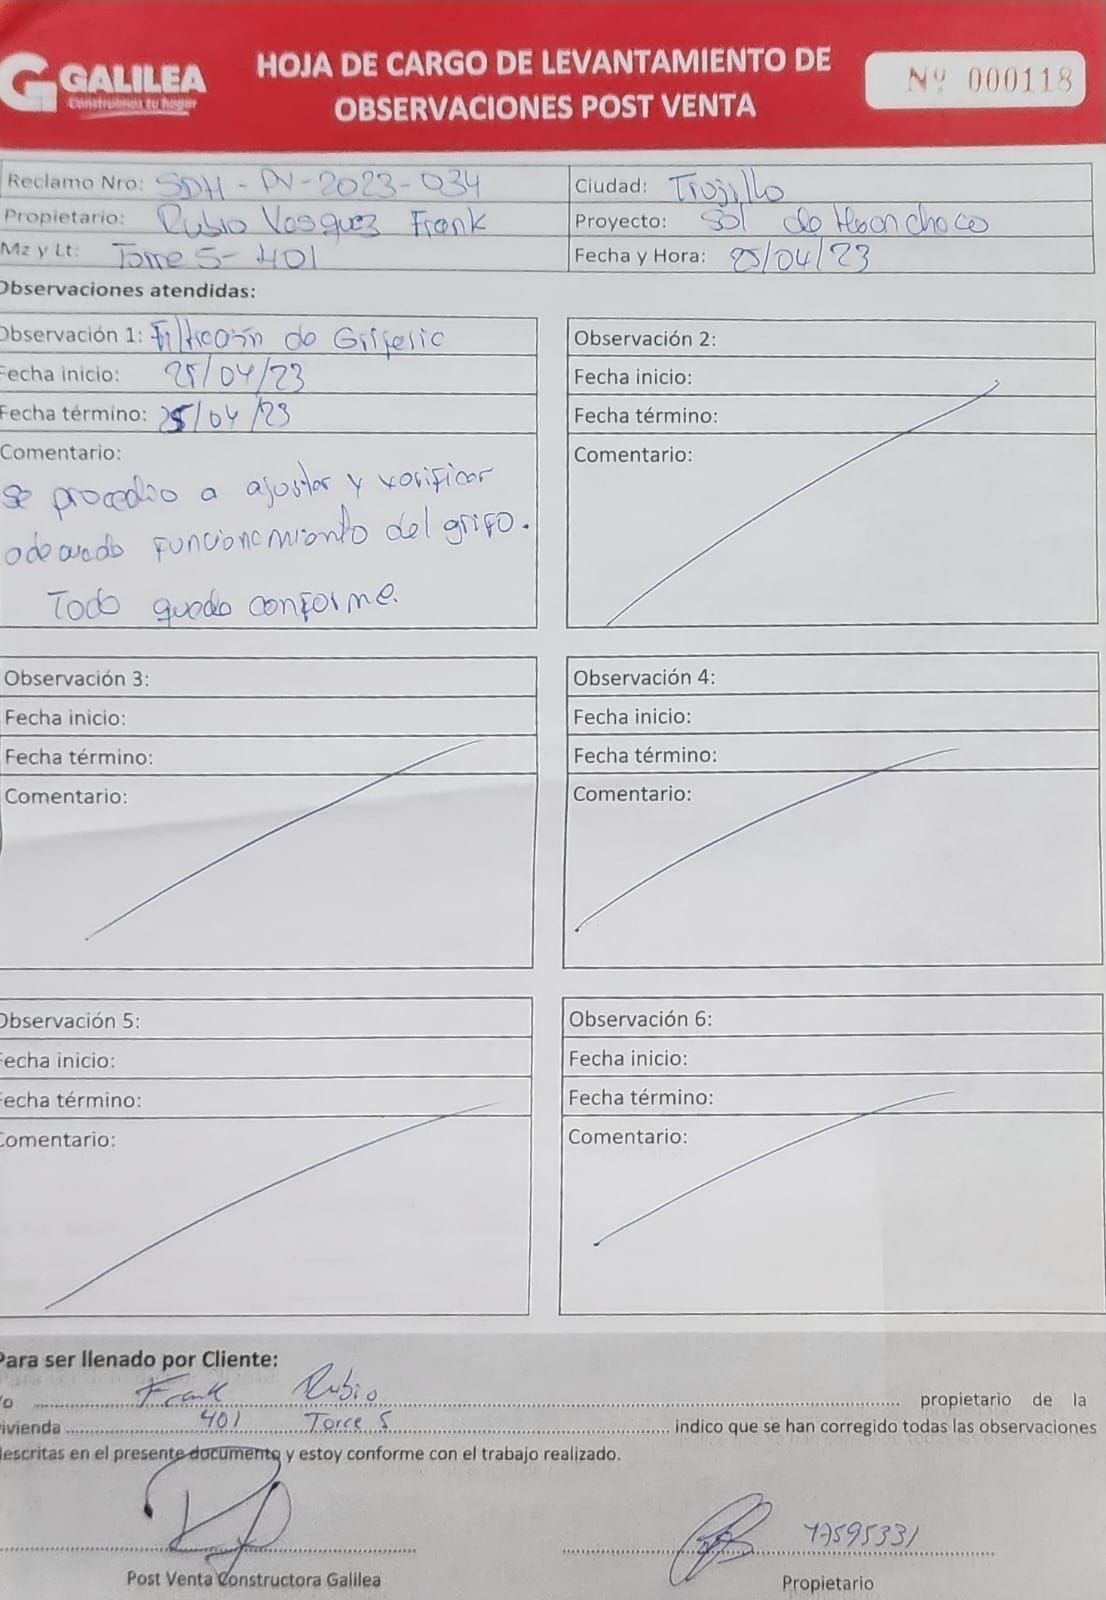 GALILEA
Construimos tu hogar
HOJA DE CARGO DE LEVANTAMIENTO DE
OBSERVACIONES POST VENTA
Nº 000118
Reclamo Nro: SDH - PV - 2023 - 034
Ciudad: Trujillo
Propietario: Rubio Vasquez Frank
Proyecto: Sol de Huanchaco
Mz y Lt: Torre 5 - 401
Fecha y Hora: 25/04/23
Observaciones atendidas:
Observación 1: Filtración de Grifería
Fecha inicio: 25/04/23
Fecha término: 25/04/23
Comentario:
se procedio a ajustar y verificar
adecuado funcionamiento del grifo.
Todo quedo conforme.
Observación 2:
Fecha inicio:
Fecha término:
Comentario:
Observación 3:
Fecha inicio:
Fecha término:
Comentario:
Observación 4:
Fecha inicio:
Fecha término:
Comentario:
Observación 5:
Fecha inicio:
Fecha término:
Comentario:
Observación 6:
Fecha inicio:
Fecha término:
Comentario:
Para ser llenado por Cliente:
Yo Frank Rubio propietario de la
vivienda 401 Torre 5 indico que se han corregido todas las observaciones
descritas en el presente documento y estoy conforme con el trabajo realizado.
Post Venta Constructora Galilea
Propietario